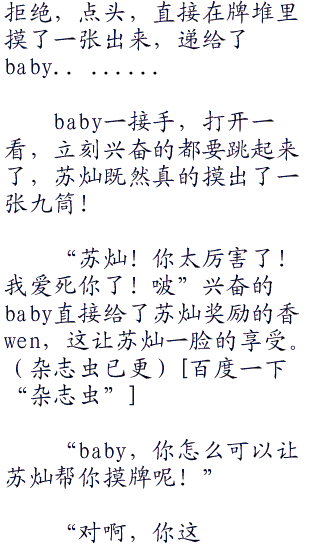 拒绝，点头，直接在牌堆里
摸了一张出来，递给了
baby．．......
baby一接手，打开一
看，立刻兴奋的都要跳起来
了，苏灿既然真的摸出了一
张九筒！
“苏灿！你太厉害了！
我爱死你了！啵”兴奋的
baby直接给了苏灿奖励的香
wen，这让苏灿一脸的享受。
（杂志虫已更）[百度一下
“杂志虫”]
“baby，你怎么可以让
苏灿帮你摸牌呢！”
“对啊，你这